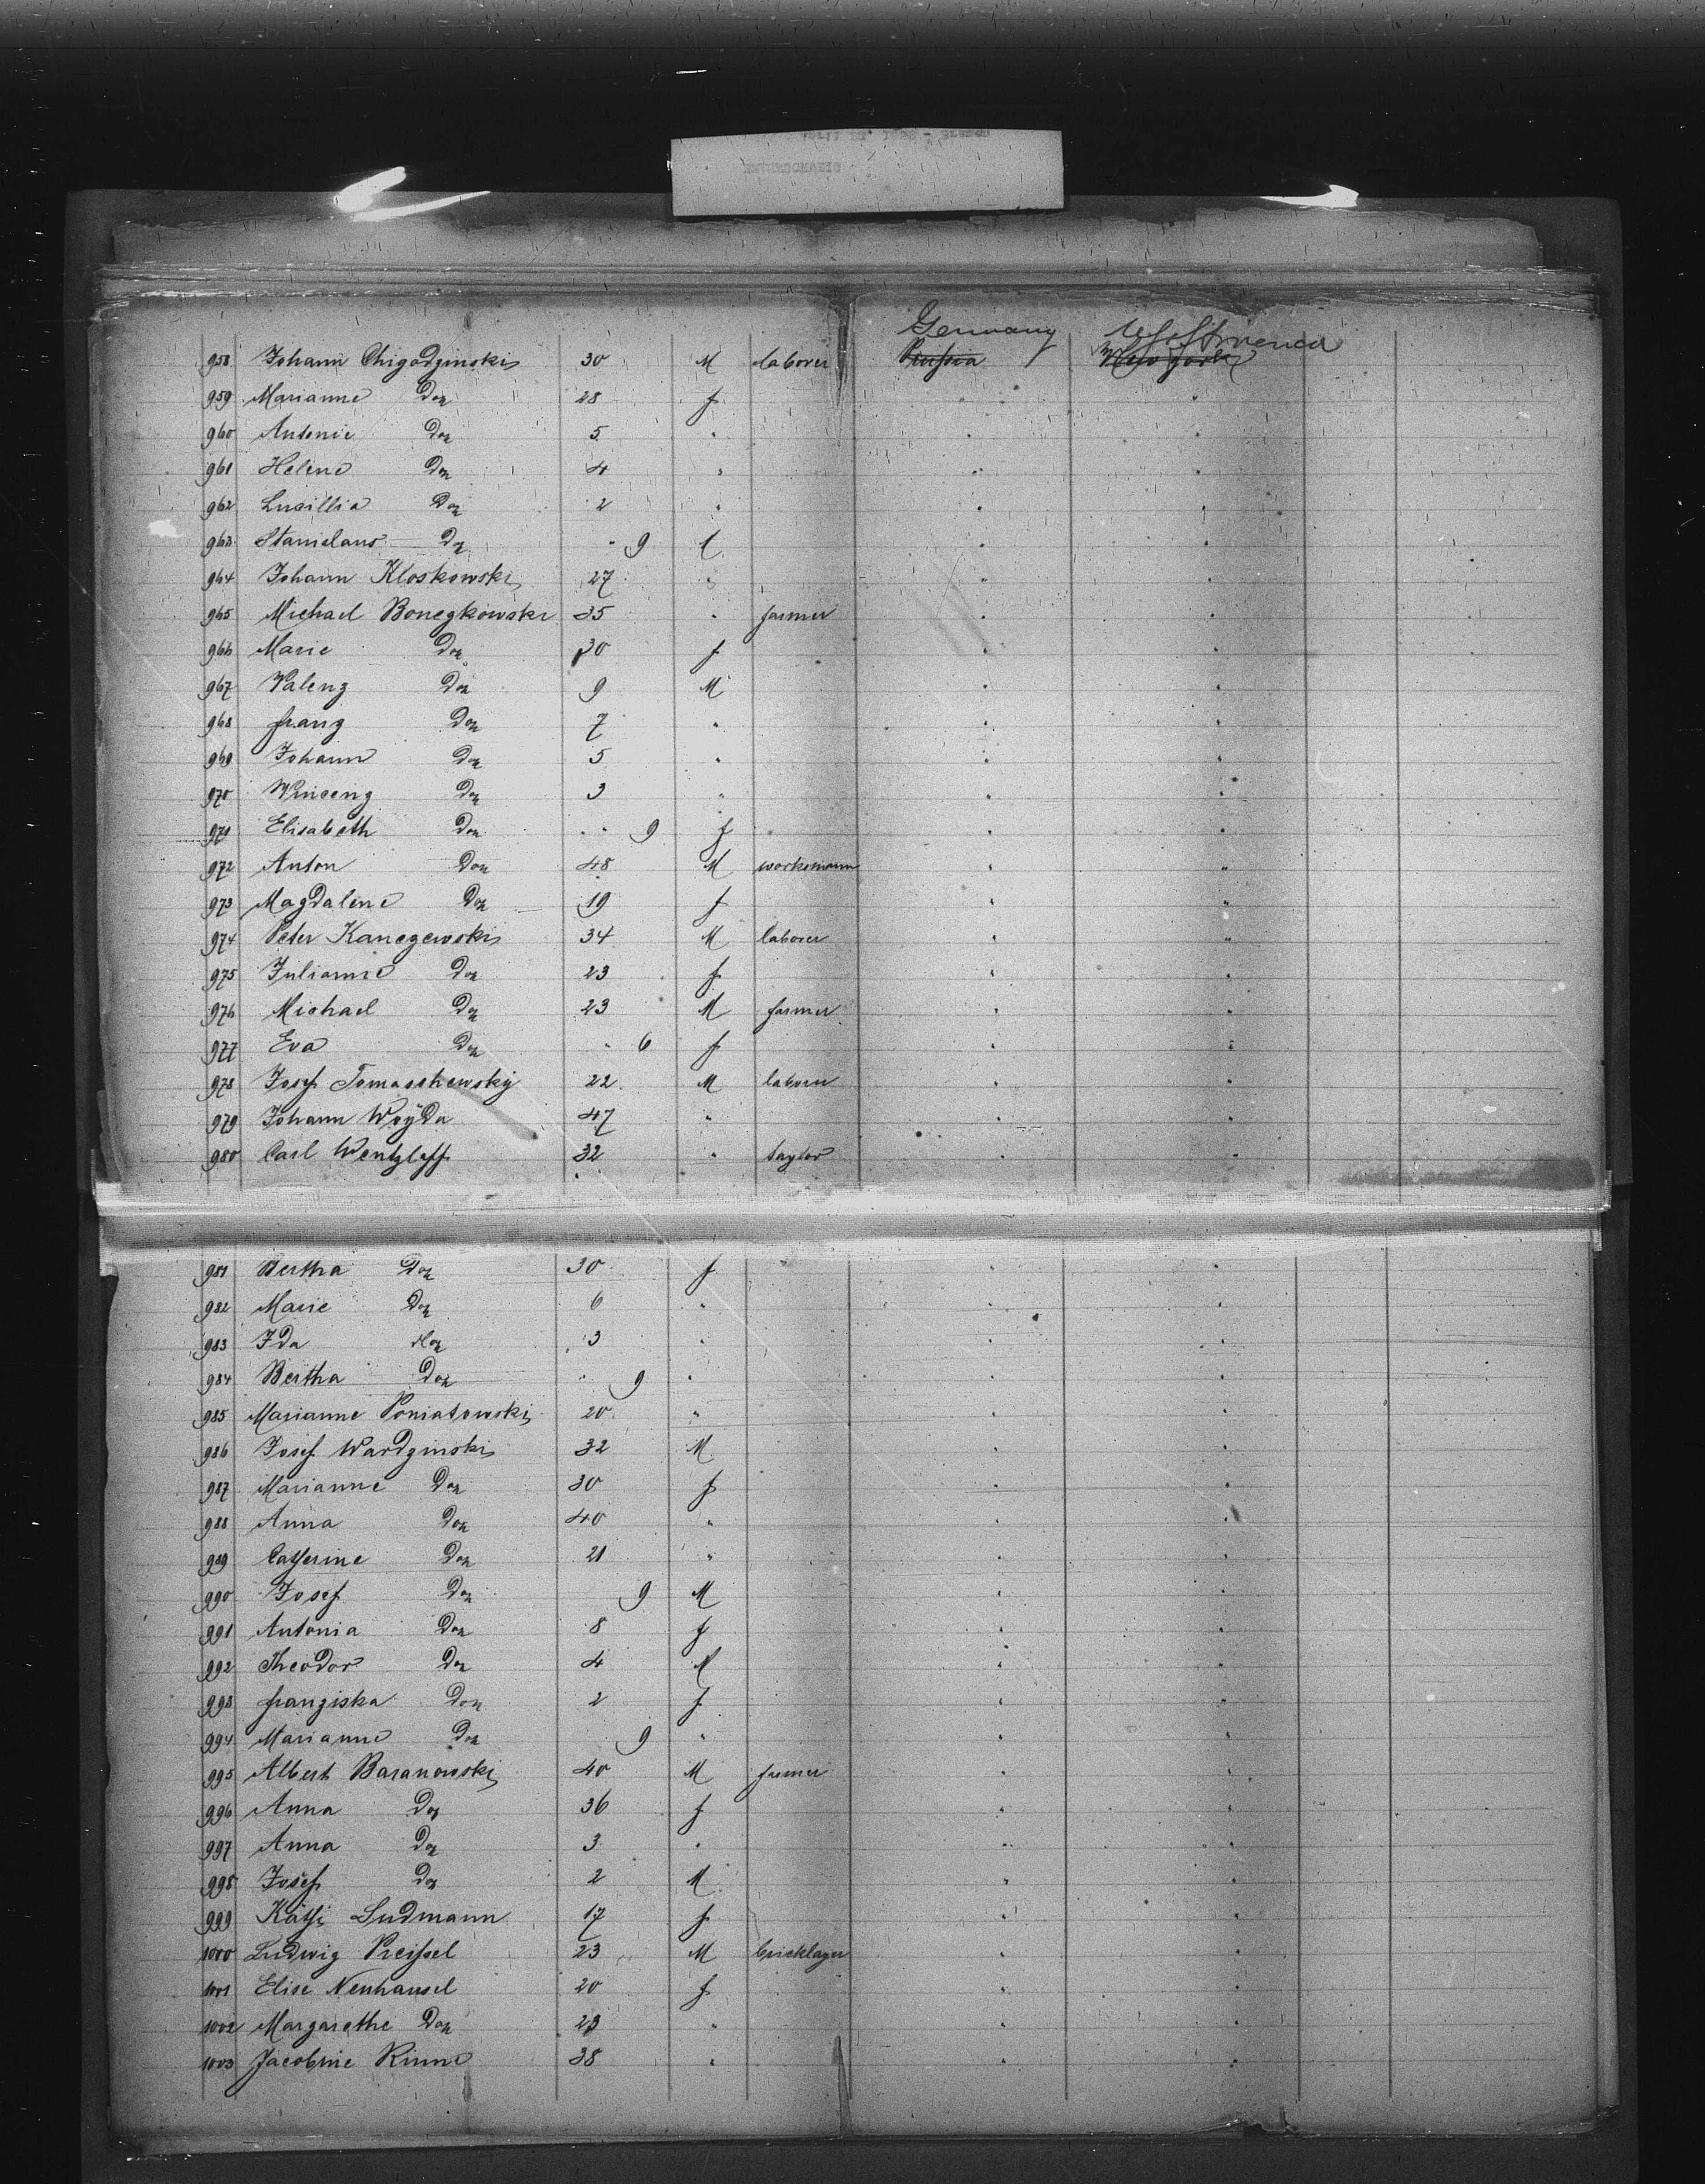 Germany U S of America
958 Johann Chigodzinski 30 M laborer Prussia New York
959 Marianne Do 28 f "
960 Antonie Do 5 "
961 Helene Do 4 "
962 Lucillia Do 2 "
963 Stanislaus Do " 9 M
964 Johann Kloskowski 27 "
965 Michael Bonezkowski 35 " farmer
966 Marie Do 30 f
967 Valenz Do 9 M
968 franz Do 7 "
969 Johann Do 5 "
970 Vincenz Do 3 "
971 Elisabeth Do " 9 f
972 Anton Do 48 M worksmann
973 Magdalene Do 19 f
974 Peter Kanezewski 34 M laborer
975 Julianne Do 23 f
976 Michael Do 23 M farmer
977 Eva Do " 6 f
978 Josef Tomaschewsky 22 M laborer
979 Johann Woÿda 47 "
980 Carl Wentzlaff 32 " taylor
981 Bertha Do 30 f
982 Marie Do 6 "
983 Ida do 3 "
984 Bertha Do " 9 "
985 Marianne Poniatowski 20 "
986 Josef Wardzinski 32 M
987 Marianne Do 30 f
988 Anna Do 40 "
989 Catherine Do 21 "
990 Josef Do 9 M
991 Antonia Do 8 f
992 Theodor Do 4 M
993 franziska Do 2 f
994 Marianne Do 9 "
995 Albert Baranowski 40 M farmer
996 Anna Do 36 f
997 Anna Do 3 "
998 Josef Do 2 M
999 Käthi Ludmann 17 f
1000 Ludwig Preissel 23 M bricklayer
1001 Elise Neuhausel 20 f
1002 Margarethe Do 23 "
1003 Jacobine Rinne 38 "